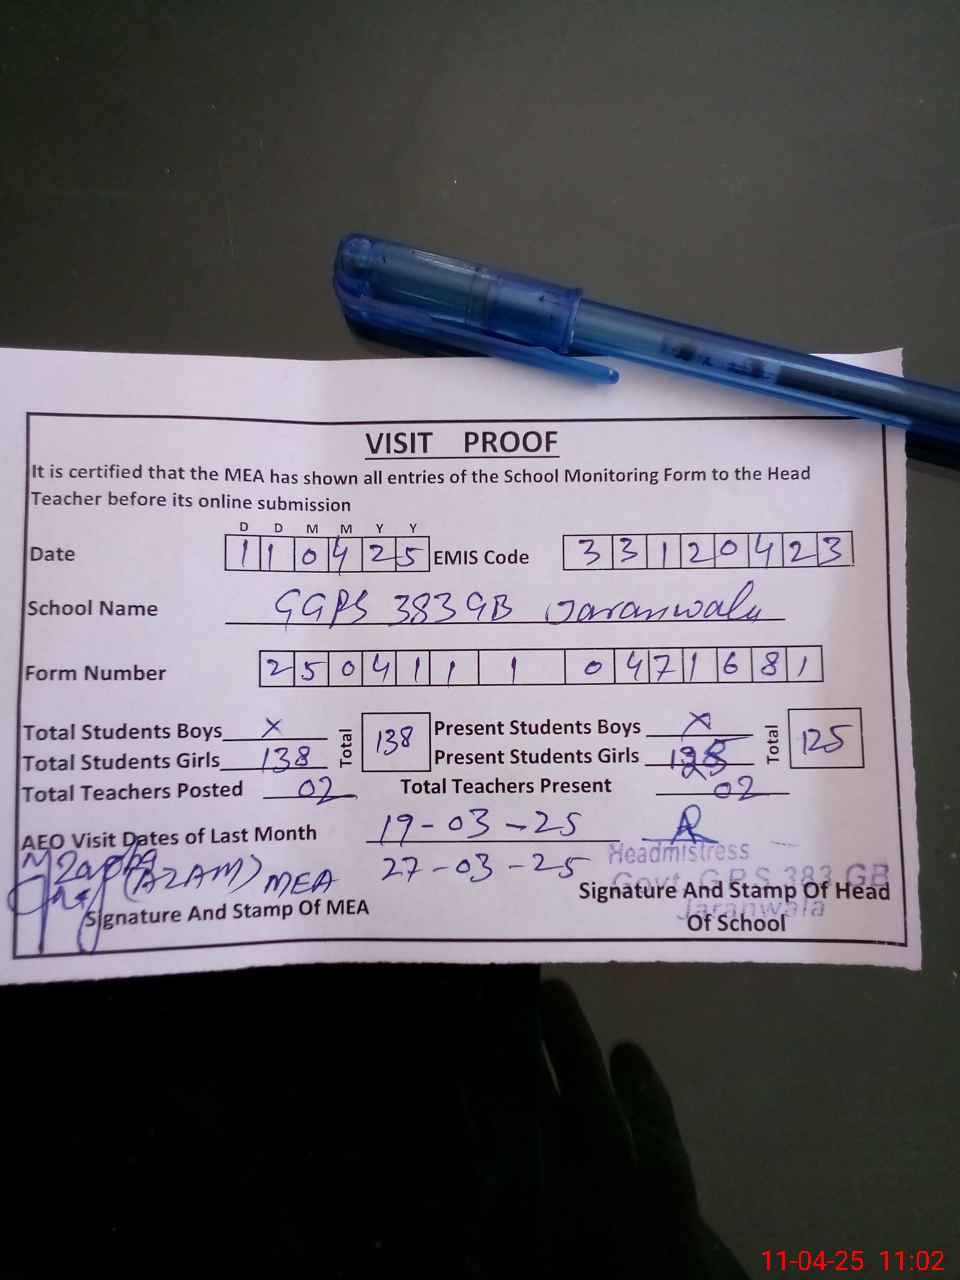 VISIT PROOF
It is certified that the MEA has shown all entries of the School Monitoring Form to the Head
Teacher before its online submission
D D M M Y Y
Date 1 1 0 4 2 5 EMIS Code 3 3 1 2 0 4 2 3
School Name GGPS 383 GB Jaranwala
Form Number 2 5 0 4 1 1 1 0 4 7 1 6 8 1
Total Students Boys X Total 138 Present Students Boys X Total 125
Total Students Girls 138 Present Students Girls
Total Teachers Posted 02 Total Teachers Present 02
AEO Visit Dates of Last Month 19-03-25
27-03-25
(AZAM) MEA
Headmistress
Govt. GPS 383 GB
Jaranwala
Signature And Stamp Of MEA
Signature And Stamp Of Head
Of School
11-04-25 11:02